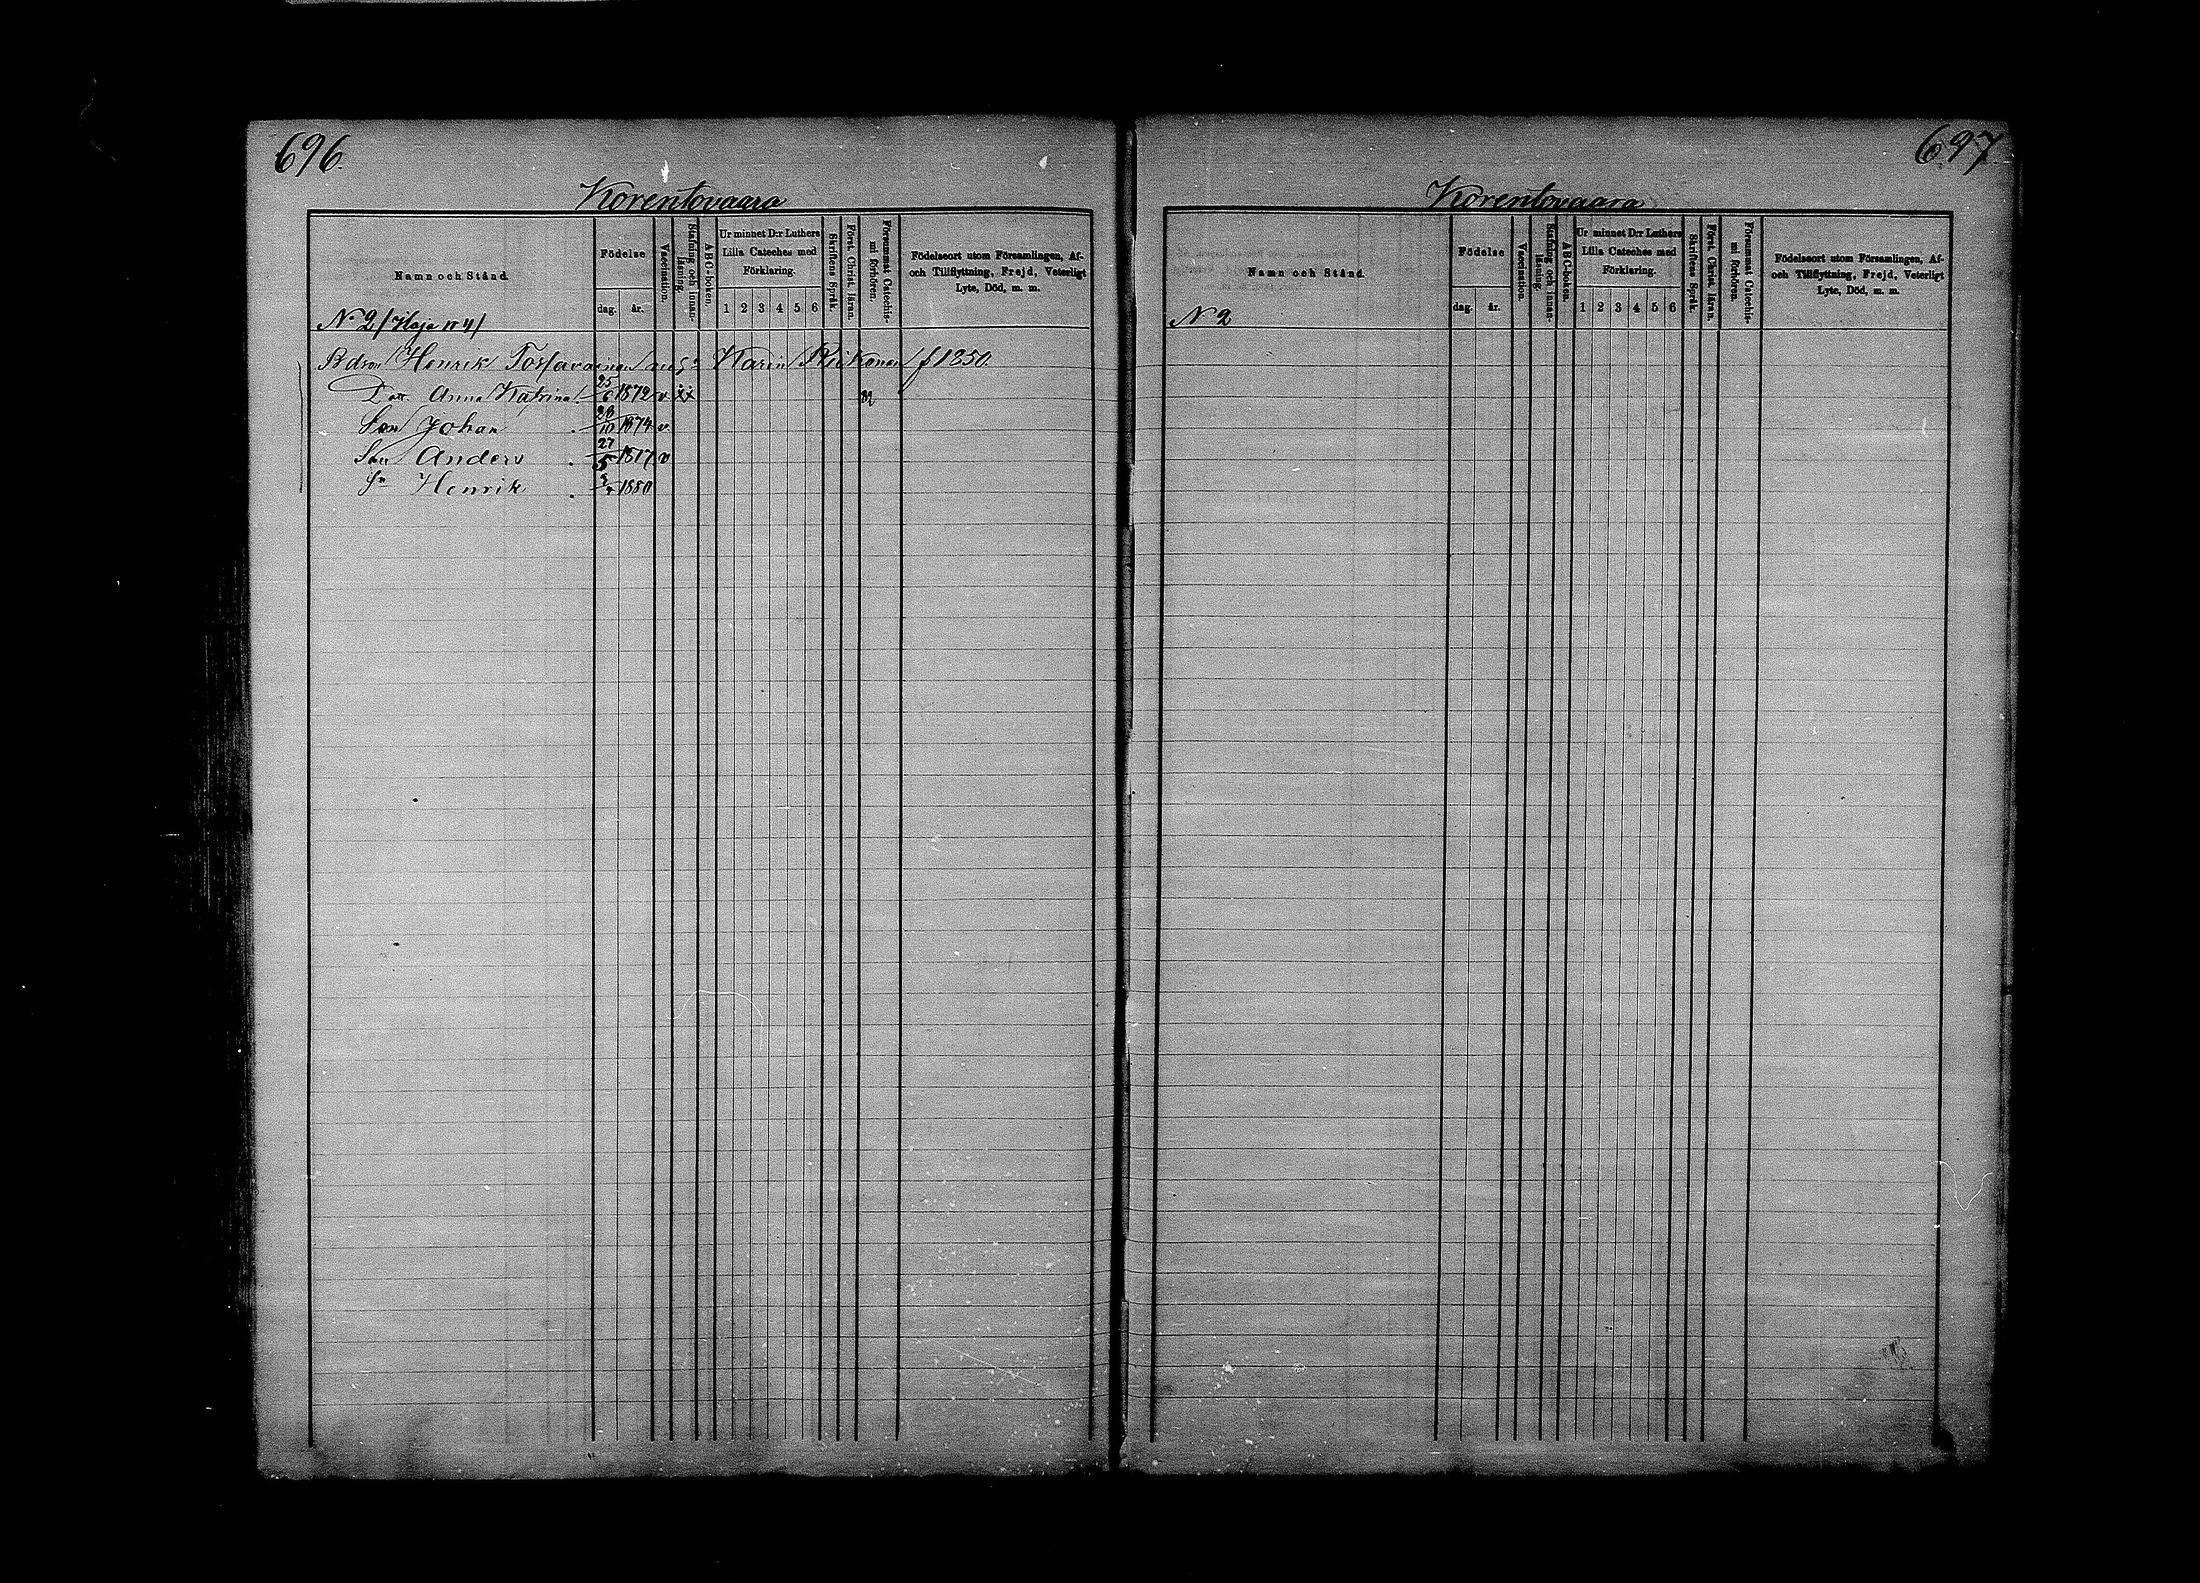 696.
Korentovaara
Namn och Stånd.
Födelse
dag.
år.
Vaccination.
Stafning och innan-
läsning.
ABC-boken.
Ur minnet D:r Luthers
Lilla Cateches med
Förklaring.
1 2 3 4 5 6
Skriftens Språk.
Först. Christ. läran.
Försummat Catechis-
mi förhören.
Födelseort utom Församlingen, Af-
och Tillflyttning, Frejd, Veterligt
Lyte, Död, m. m.
No 2 / Koja n 4 /
Bdron Henrik Karin f 1850.
Dott. Anna Katrina 25/6 1872 v xx
Son Johan 28/10 1874 v.
Son Anders 27/5 1877 v
Sn Henrik 1880
697
Korentovaara
Namn och Stånd.
Födelse
dag.
år.
Vaccination.
Stafning och innan-
läsning.
ABC-boken.
Ur minnet D:r Luthers
Lilla Cateches med
Förklaring.
1 2 3 4 5 6
Skriftens Språk.
Först. Christ. läran.
Försummat Catechis-
mi förhören.
Födelseort utom Församlingen, Af-
och Tillflyttning, Frejd, Veterligt
Lyte, Död, m. m.
N 2